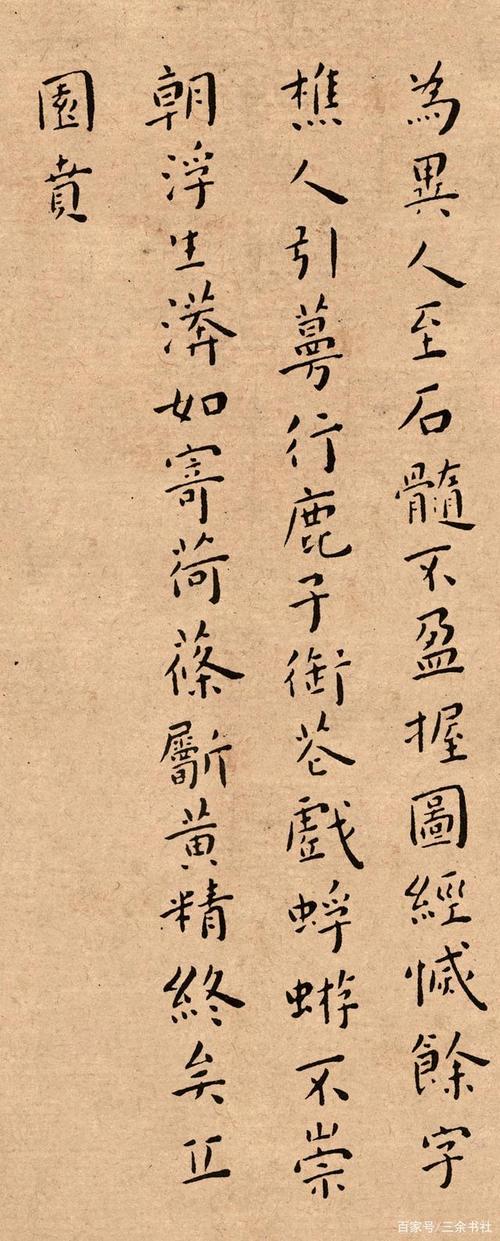 為異人至石髓不盈握圖經滅餘字
樵人引萼行鹿子銜花戲蜉蝣不崇
朝浮生漭如寄荷蓧斸黄精終矣丘
園賁
百家号/三余书社